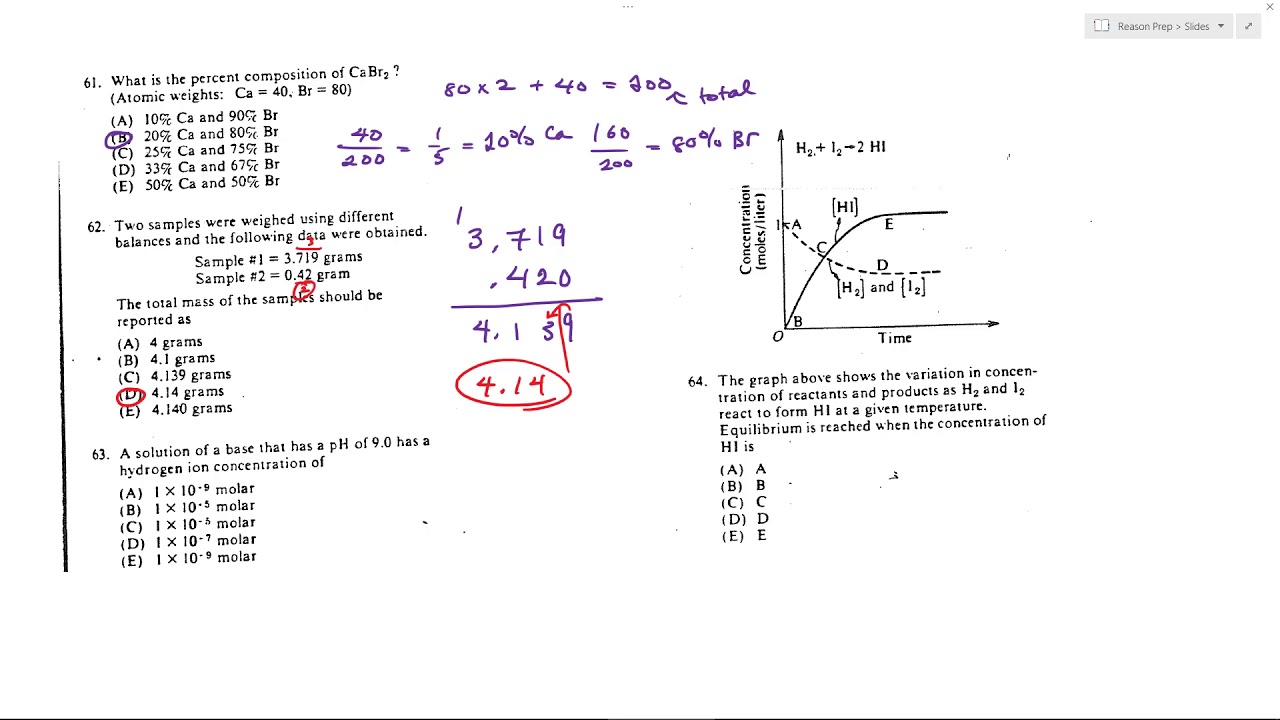 Reason Prep > Slides
61. What is the percent composition of CaBr₂ ?
(Atomic weights: Ca = 40, Br = 80)
(A) 10% Ca and 90% Br
(B) 20% Ca and 80% Br
(C) 25% Ca and 75% Br
(D) 33% Ca and 67% Br
(E) 50% Ca and 50% Br
80 x 2 + 40 = 200
total
40/200 = 1/5 = 20% Ca 160/200 = 80% Br
62. Two samples were weighed using different
balances and the following data were obtained.
3
Sample #1 = 3.719 grams
Sample #2 = 0.42 gram
2
The total mass of the samples should be
reported as
(A) 4 grams
(B) 4.1 grams
(C) 4.139 grams
(D) 4.14 grams
(E) 4.140 grams
1
3,719
.420
4.139
4.14
63. A solution of a base that has a pH of 9.0 has a
hydrogen ion concentration of
(A) 1 × 10⁻⁹ molar
(B) 1 × 10⁻⁵ molar
(C) 1 × 10⁻⁵ molar
(D) 1 × 10⁻⁷ molar
(E) 1 × 10⁻⁹ molar
H₂ + I₂→2 HI
Concentration
(moles/liter)
1
A
[HI]
E
C
D
[H₂] and [I₂]
B
O
Time
64. The graph above shows the variation in concen-
tration of reactants and products as H₂ and I₂
react to form HI at a given temperature.
Equilibrium is reached when the concentration of
HI is
(A) A
(B) B
(C) C
(D) D
(E) E